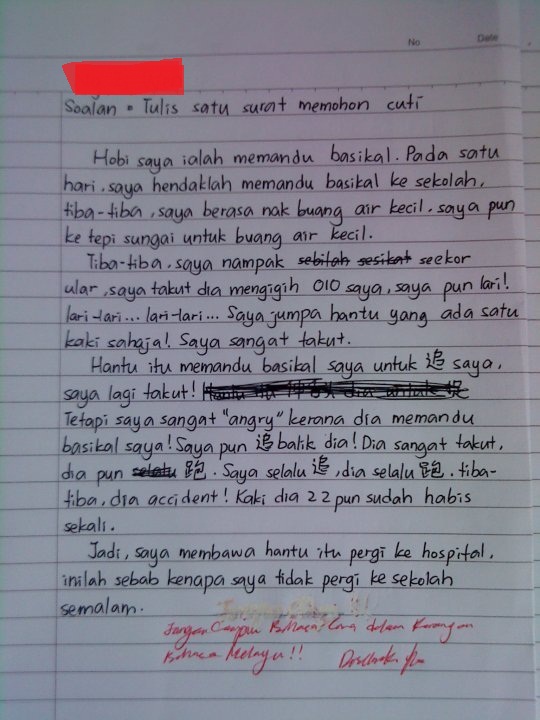 No
Date
Soalan = Tulis satu surat memohon cuti
Hobi saya ialah memandu basikal. Pada satu
hari, saya hendaklah memandu basikal ke sekolah,
tiba-tiba, saya berasa nak buang air kecil. saya pun
ke tepi sungai untuk buang air kecil.
Tiba-tiba, saya nampak sebilah sesikat seekor
ular, saya takut dia mengigih 010 saya, saya pun lari!
lari-lari... lari-lari... Saya jumpa hantu yang ada satu
kaki sahaja! Saya sangat takut.
Hantu itu memandu basikal saya untuk 追 saya,
saya lagi takut!
Tetapi saya sangat "angry" kerana dia memandu
basikal saya! Saya pun 追 balik dia! Dia sangat takut,
dia pun selalu 跑. Saya selalu 追, dia selalu 跑. tiba-
tiba, dia accident! Kaki dia 22 pun sudah habis
sekali.
Jadi, saya membawa hantu itu pergi ke hospital,
inilah sebab kenapa saya tidak pergi ke sekolah
semalam.
Jangan Campur Bahasa Cina dalam Karangan
Bahasa Melayu!!